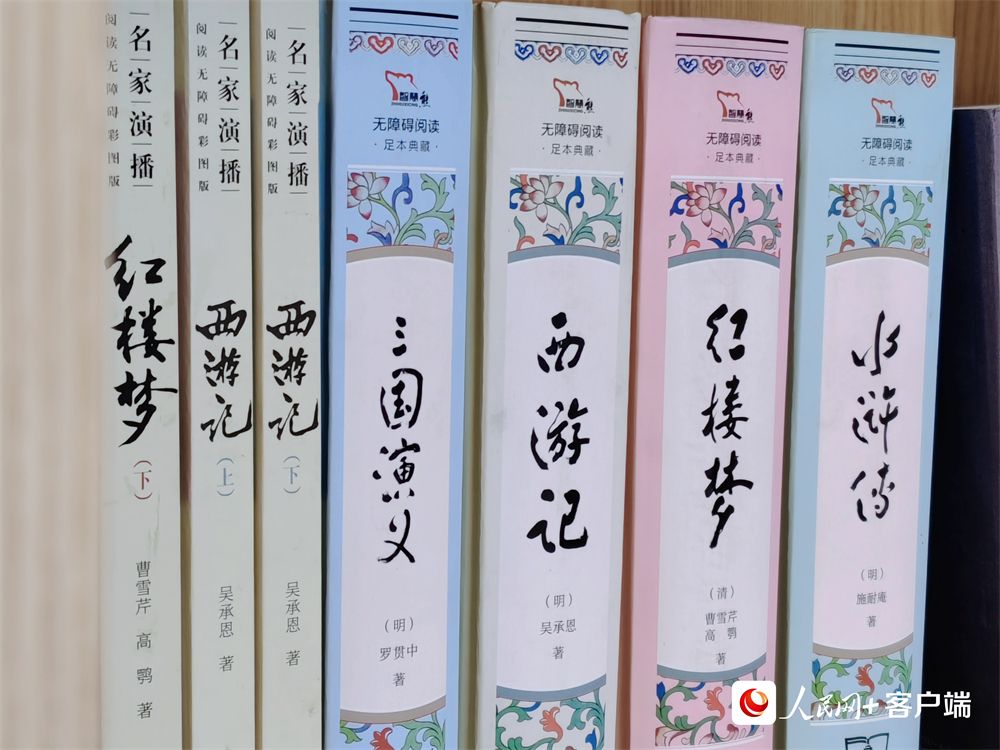 名家演播
阅读无障碍彩图版
红楼梦
(下)
曹雪芹 高鹗 著
名家演播
阅读无障碍彩图版
西游记
(上)
吴承恩 著
名家演播
阅读无障碍彩图版
西游记
(下)
吴承恩 著
智慧熊
ZHIHUIXIONG
无障碍阅读
·足本典藏·
三国演义
(明)
罗贯中
著
智慧熊
ZHIHUIXIONG
无障碍阅读
·足本典藏·
西游记
(明)
吴承恩
著
智慧熊
ZHIHUIXIONG
无障碍阅读
·足本典藏·
红楼梦
(清)
曹雪芹
高鹗
著
智慧熊
ZHIHUIXIONG
无障碍阅读
·足本典藏·
水浒传
(明)
施耐庵
著
人民网+客户端